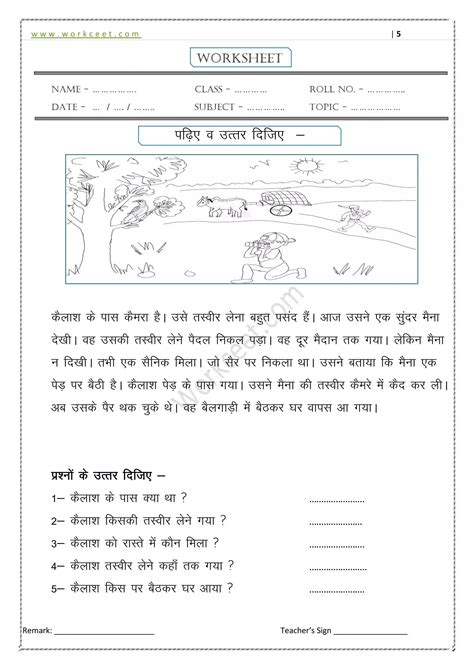 www.workceet.com | 5
WORKSHEET
NAME - ................ CLASS - ............ ROLL NO. - .........
DATE - ... / .... / ........ SUBJECT - .............. TOPIC - ..............
पढ़िए व उत्तर दिजिए –
कैलाश के पास कैमरा है। उसे तस्वीर लेना बहुत पसंद हैं। आज उसने एक सुंदर मैना
देखी। वह उसकी तस्वीर लेने पैदल निकल पड़ा। वह दूर मैदान तक गया। लेकिन मैना
न दिखी। तभी एक सैनिक मिला। जो सैर पर निकला था। उसने बताया कि मैना एक
पेड़ पर बैठी है। कैलाश पेड़ के पास गया। उसने मैना की तस्वीर कैमरे में कैद कर ली।
अब उसके पैर थक चुके थे। वह बैलगाड़ी में बैठकर घर वापस आ गया।
Workceet.com
प्रश्नों के उत्तर दिजिए –
1– कैलाश के पास क्या था ? ........................
2– कैलाश किसकी तस्वीर लेने गया ? ........................
3– कैलाश को रास्ते में कौन मिला ? ........................
4– कैलाश तस्वीर लेने कहाँ तक गया ? ........................
5– कैलाश किस पर बैठकर घर आया ? ........................
Remark: ______________________ Teacher's Sign ________________